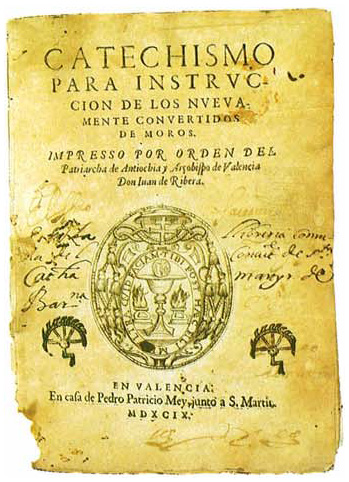 CATECHISMO
PARA INSTRVC-
CION DE LOS NVEVA-
MENTE CONVERTIDOS
DE MOROS.
IMPRESSO POR ORDEN DEL
Patriarcha de Antiochia y Arçobiſpo de Valencia
Don Iuan de Ribera.
Libreria
de
martyr de
Barna
EN VALENCIA:
En caſa de Pedro Patricio Mey, junto a S. Martin.
MDXCIX.